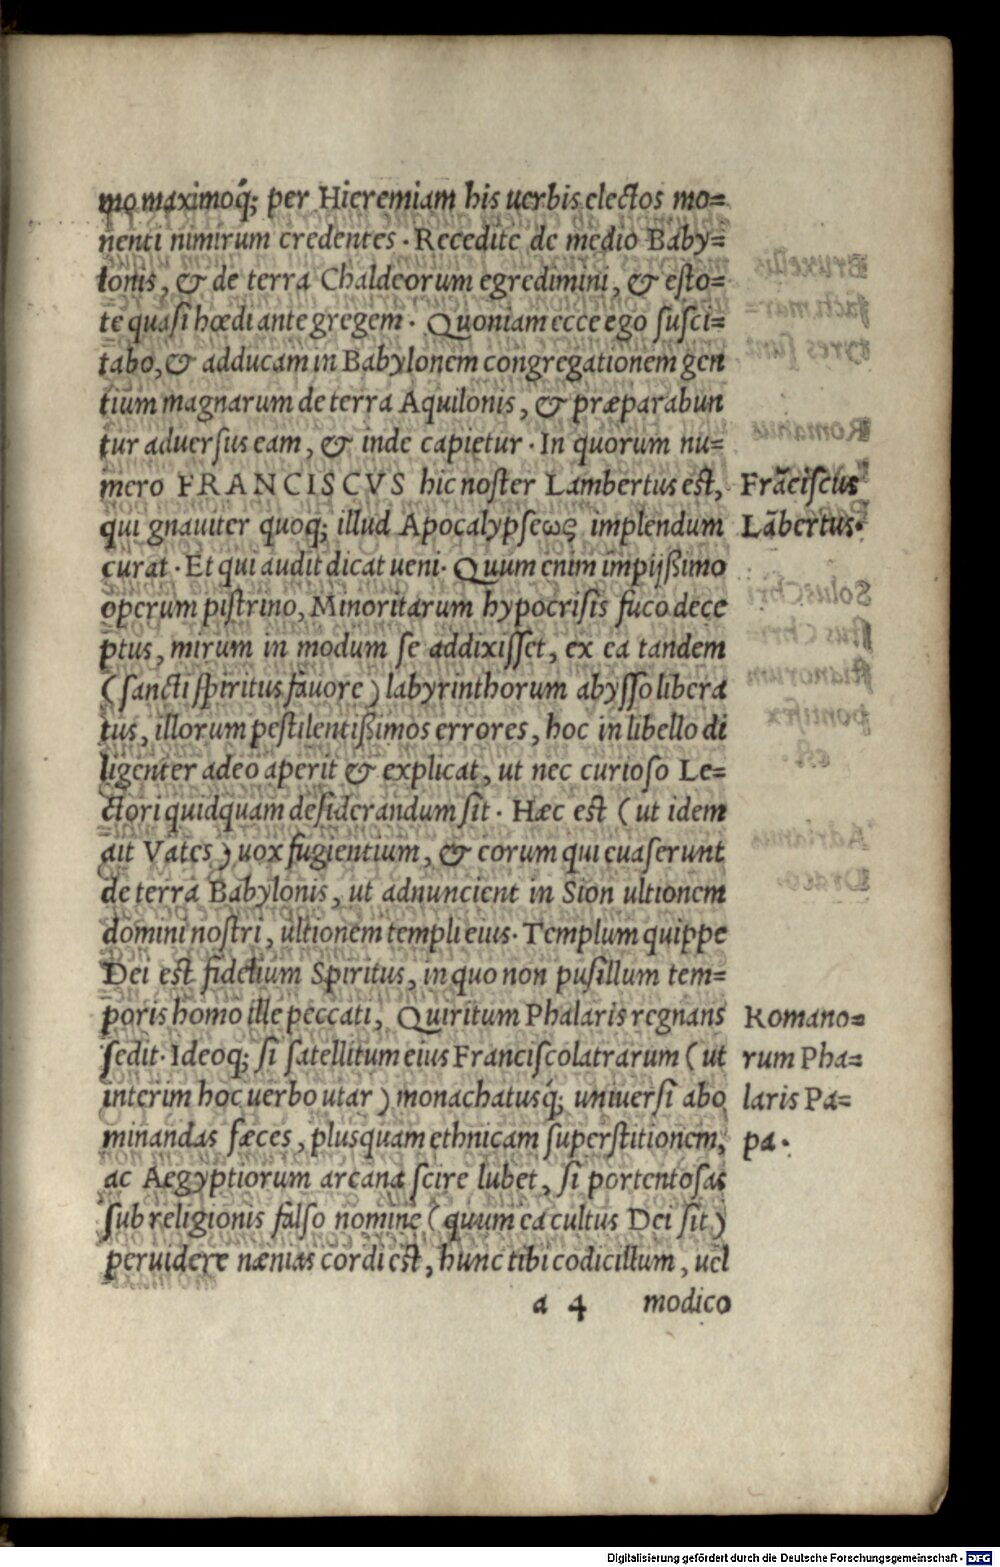 mo maximoq́; per Hieremiam his uerbis electos mo=
nenti nimirum credentes · Recedite de medio Baby=
lonis, & de terra Chaldeorum egredimini, & esto=
te quasi hœdi ante gregem · Quoniam ecce ego susci=
tabo, & adducam in Babylonem congregationem gen
tium magnarum de terra Aquilonis, & præparabun
tur aduersus eam, & inde capietur · In quorum nu=
mero FRANCISCVS hic noster Lambertus est,
Frãciscus
qui gnauiter quoq; illud Apocalypseως implendum
Lãbertus·
curat · Et qui audit dicat ueni · Quum enim impijssimo
operum pistrino, Minoritarum hypocrisis fuco dece
ptus, mirum in modum se addixisset, ex ea tandem
(sancti spiritus fauore) labyrinthorum abysso libera
tus, illorum pestilentissimos errores, hoc in libello di
ligenter adeo aperit & explicat, ut nec curioso Le=
ctori quidquam desiderandum sit · Hæc est (ut idem
ait Vates) uox fugientium, & eorum qui euaserunt
de terra Babylonis, ut adnuncient in Sion ultionem
domini nostri, ultionem templi eius · Templum quippe
Dei est fidelium Spiritus, in quo non pusillum tem=
poris homo ille peccati, Quiritum Phalaris regnans
Romano=
sedit · Ideoq; si satellitum eius Franciscolatrarum (ut
rum Pha=
interim hoc uerbo utar) monachatusq́; uniuersi abo
laris Pa=
minandas fæces, plusquam ethnicam superstitionem,
pa ·
ac Aegyptiorum arcana scire lubet, si portentosas
sub religionis falso nomine (quum ea cultus Dei sit)
peruidere nænias cordi est, hunc tibi codicillum, uel
a 4 modico
Digitalisierung gefördert durch die Deutsche Forschungsgemeinschaft - DFG